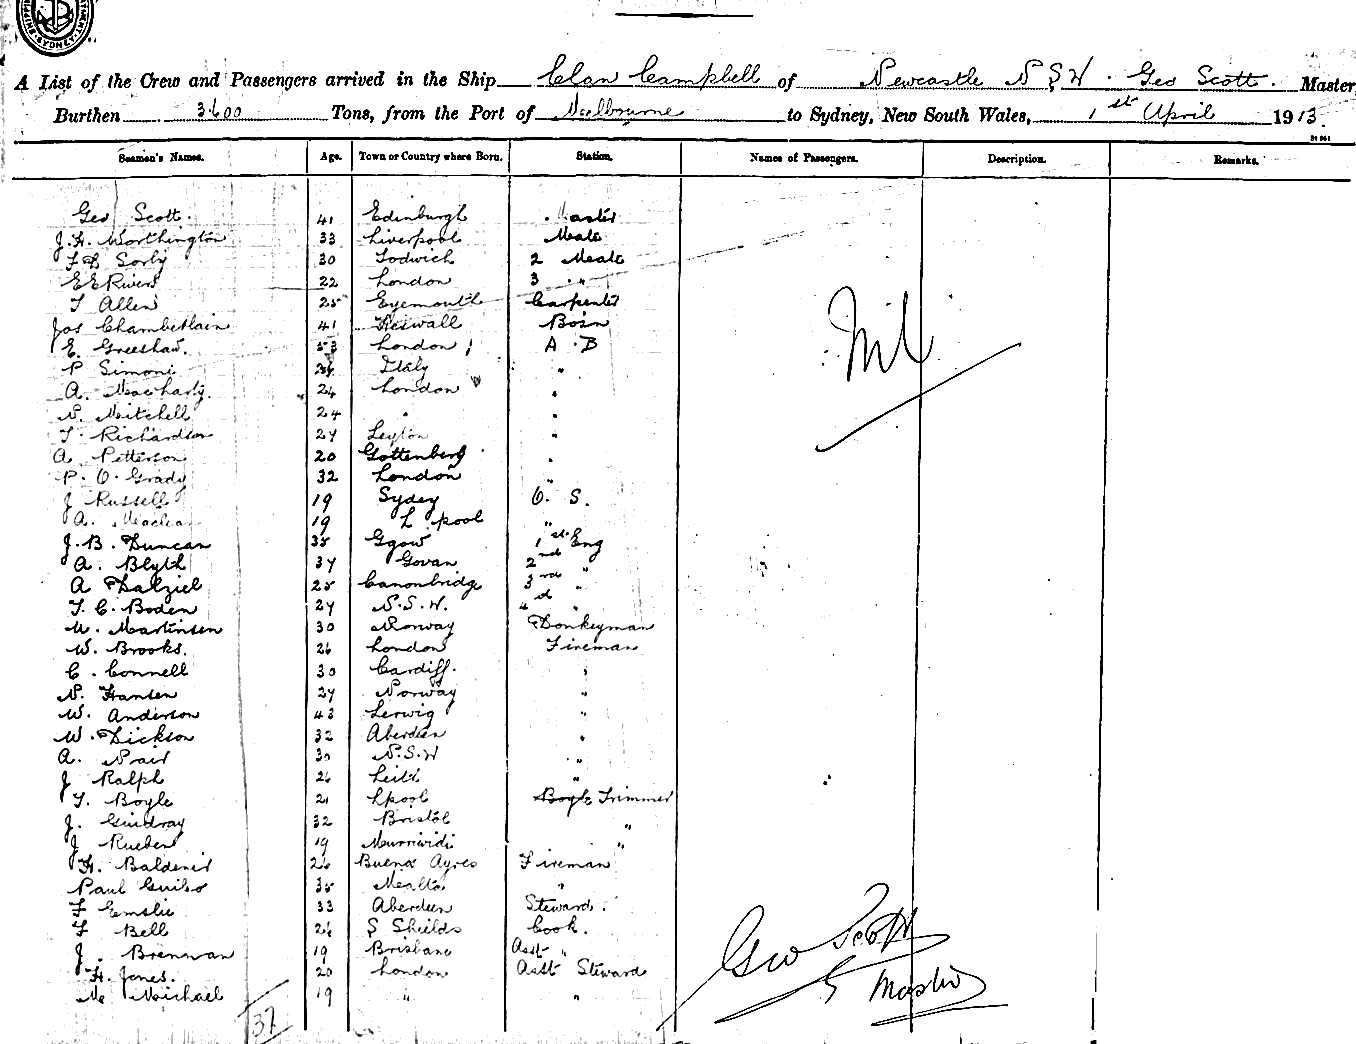 SYDNEY
A List of the Crew and Passengers arrived in the Ship Clan Campbell of Newcastle N S W. Geo Scott. Master
Burthen 3600 Tons, from the Port of Melbourne to Sydney, New South Wales, 1st April 1913.
Seamen's Names. Age. Town or Country where Born. Station. Names of Passengers. Description. Remarks.
Geo Scott. 41 Edinburgh Master
J.H. Worthington 33 Liverpool Mate
F Sorby 30 Todwich 2 Mate
E E Rivers 22 London 3 "
T Allen 25 Eyemouth Carpenter
Jos Chamberlain 41 Bosn
E. Greeshaw. 53 London A.B
P Simoni Italy "
A. 24 London "
N. Mitchell 24 " "
T. Richardson 27 Leyton "
A Petterson 20 Gottenberg "
P. O. Grady 32 London "
J Russell 19 Sydey O. S.
A. 19 L pool "
J.B. Duncan 35 Ggow 1st Eng
A. Blyth 37 Govan 2nd "
A Dalziel 25 Canonbridge 3rd "
T. C. Boden 27 N.S.W. 4 "
M. Martinsen 30 Norway Donkeyman
W. Brooks. 26 London Fireman
C. Connell 30 Cardiff. "
N. Hansen 27 Norway "
W. Anderson 43 Lerwig "
W. Dickson 32 Aberdeen "
A. Nair 30 N.S.W "
J Ralph 26 Leith "
T. Boyle 21 Lpool Boyle Trimmer
J. 32 Bristol "
J Rueben 19 "
H. 26 Buena Ayres Fireman
Paul 35 Malta "
F Emslie 33 Aberdeen Steward.
F Bell 26 S Shields Cook.
J. Brennan 19 Brisbane Asst "
H. Jones. 20 London Asst Steward
Mc Michael 19 " "
37
Nil
Geo Scott
Master